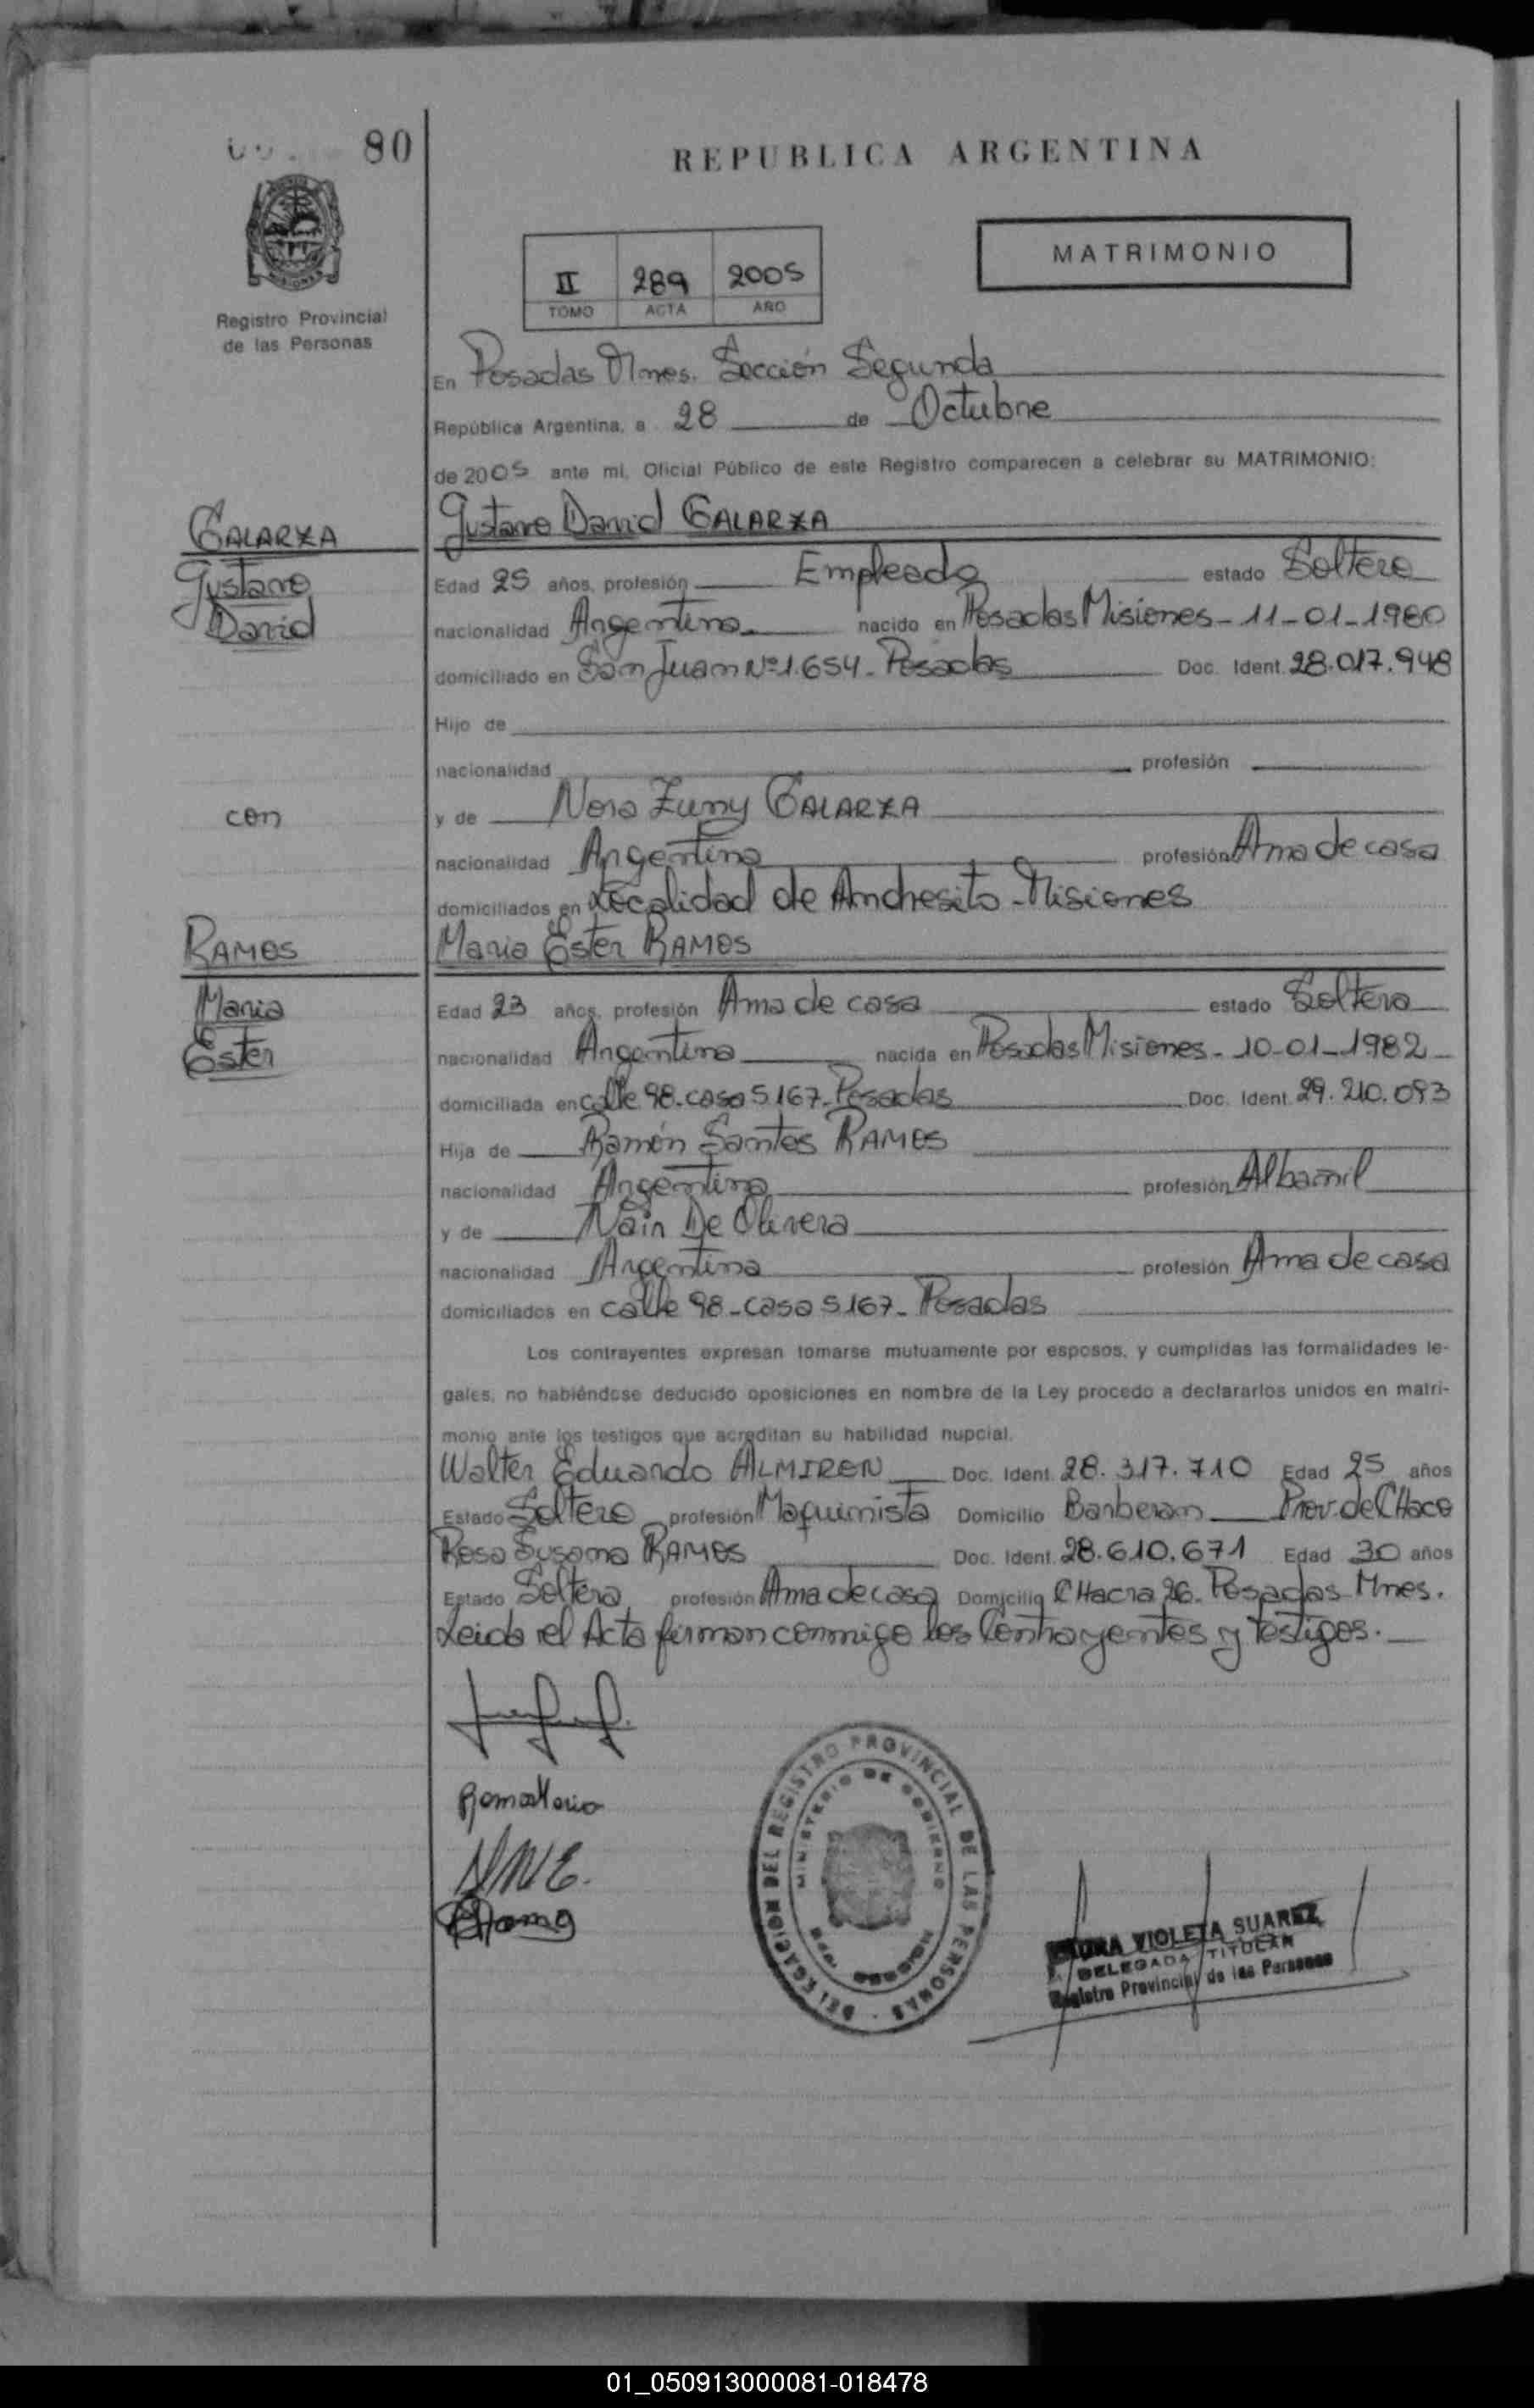 80
REPUBLICA ARGENTINA
MATRIMONIO
II 289 2005
TOMO ACTA AÑO
Registro Provincial
de las Personas
En Posadas Mnes. Sección Segunda
República Argentina, a 28 de Octubre
de 2005 ante mi, Oficial Público de este Registro comparecen a celebrar su MATRIMONIO:
GALARZA
Gustavo
David
Gustavo David GALARZA
Edad 25 años, profesión Empleado estado Soltero
nacionalidad Argentina nacido en Posadas Misiones - 11-01-1980
domiciliado en San Juan Nº 1.654 - Posadas Doc. Ident. 28.017.948
Hijo de
nacionalidad profesión
con
y de Nora Zuny GALARZA
nacionalidad Argentina profesión Ama de casa
domiciliados en Localidad de Andresito - Misiones
RAMOS
Maria
Ester
Maria Ester RAMOS
Edad 23 años, profesión Ama de casa estado Soltera
nacionalidad Argentina nacida en Posadas Misiones - 10-01-1982
domiciliada en calle 98 - casa 5167 - Posadas Doc. Ident. 29.210.093
Hija de Ramón Santos RAMOS
nacionalidad Argentina profesión Albañil
y de Nain De Olivera
nacionalidad Argentina profesión Ama de casa
domiciliados en calle 98 - casa 5167 - Posadas
Los contrayentes expresan tomarse mutuamente por esposos, y cumplidas las formalidades le-
gales, no habiéndose deducido oposiciones en nombre de la Ley procedo a declararlos unidos en matri-
monio ante los testigos que acreditan su habilidad nupcial.
Walter Eduardo ALMIRON Doc. Ident. 28.317.710 Edad 25 años
Estado Soltero profesión Maquinista Domicilio Barberan Prov. de CHaco
Rosa Susana RAMOS Doc. Ident. 28.610.671 Edad 30 años
Estado Soltera profesión Ama de casa Domicilio CHacra 26. Posadas Mnes.
Leida el Acta firman conmigo los Contrayentes y testigos.
DELEGACION DEL REGISTRO PROVINCIAL DE LAS PERSONAS
MINISTERIO DE GOBIERNO
VIOLETA SUAREZ
DELEGADA TITULAR
Registro Provincial de las Personas
01_050913000081-018478